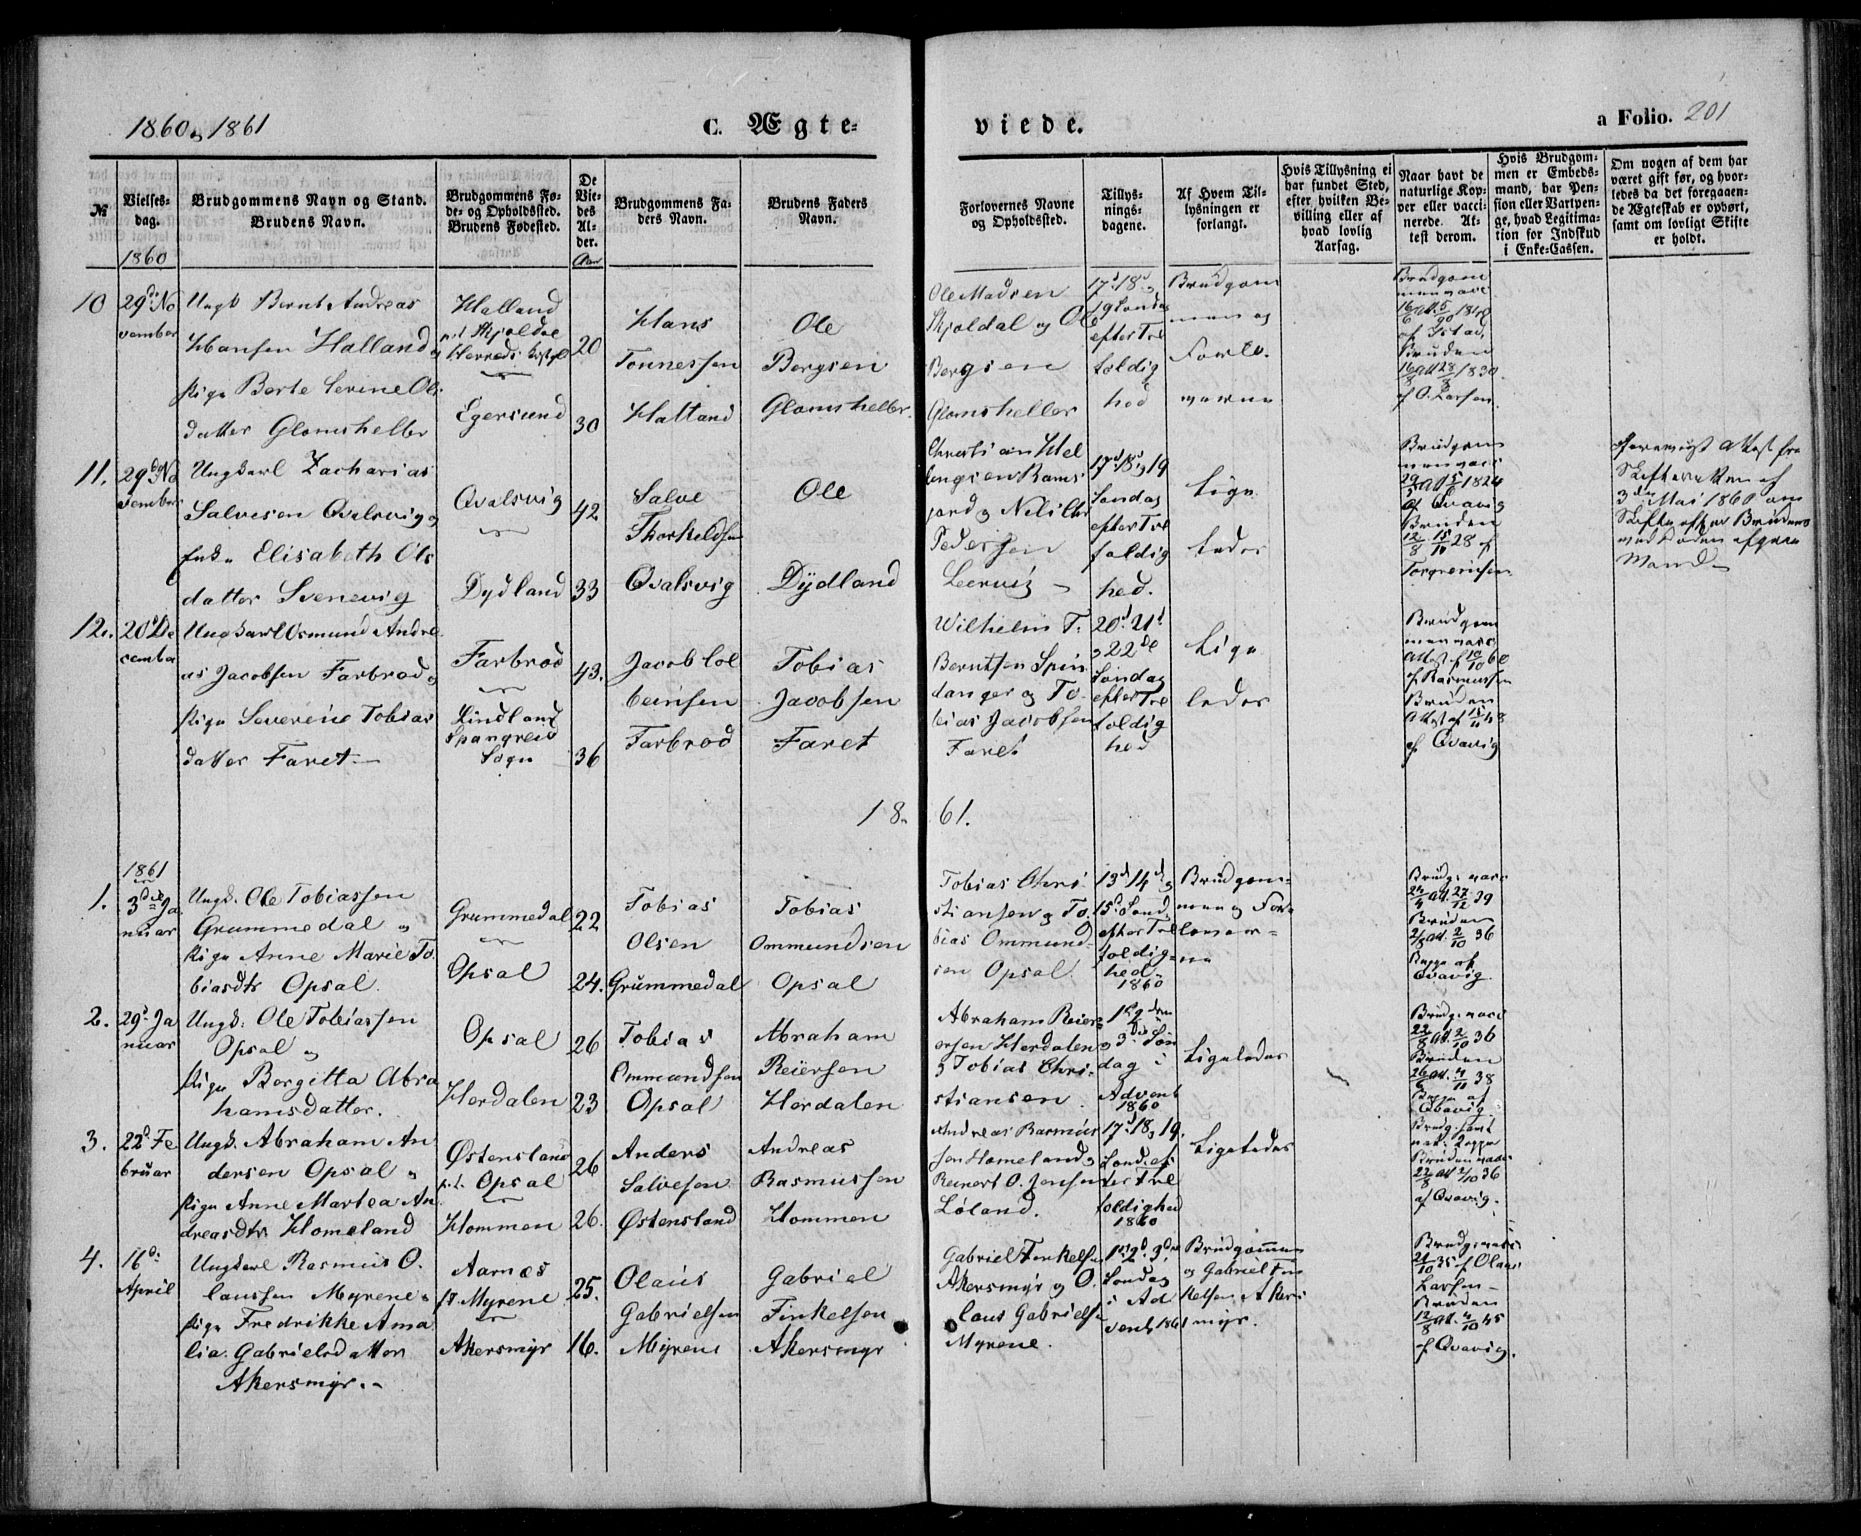 1860 og 1861
C. Ægte-
viede.
a Folio. 201
№
Vielses-
dag.
1860
Brudgommens Navn og Stand.
Brudens Navn.
Brudgommens Fø-
de- og Opholdssted.
Brudens Fødested.
De
Vie-
des
Al-
der.
Aar
Brudgommens Fa-
ders Navn.
Brudens Faders
Navn.
Forlovernes Navne
og Opholdssted.
Tillys-
nings-
dagene.
Af Hvem Til-
lysningen er
forlangt.
Hvis Tillysning ei
har fundet Sted,
efter hvilken Be-
villing eller af
hvad lovlig
Aarsag.
Naar havt de
naturlige Kop-
per eller vacci-
nerede. At-
test derom.
Hvis Brudgom-
men er Embeds-
mand, har Pen-
sion eller Vartpen-
ge, hvad Legitima-
tion for Indskud
i Enke-Cassen.
Om nogen af dem har
været gift før, og hvor-
ledes da det foregaaen-
de Ægteskab er ophørt,
samt om lovligt Skifte
er holdt.
10
29de No
vember
Ungk Bernt Andreas
Hansen Halland og
Pige Berte Serine Ols
datter Glomsheller
Halland
Egersund
20
30
Hans
Tønnessen
Halland
Ole
Bergsen
Glomsheller.
Ole Madsen
Skjoldal og Ole
Bergsen
Glomsheller
17d 18d og
19 Søndag
efter Tre
foldig
hed
Brudgom
men og
Forlo
verne
Brudgom
men vacc
af Ystad,
Bruden
af O. Larsen.
11.
29de No
vember
Ungkarl Zacharias
Salvesen Qvalsvig og
Enke Elisabeth Ols
datter Svenevig
Qvalsvig
Dydland
42
33
Salve
Thorkeldsen
Qvalsvig
Ole
Dydland
Christian Hel
Pedersen
Leervig
17d 18d og 19
Søndag
efter Tre
foldig
hed.
Lige
ledes
Brudgom
men vacc
af Qvavig
Bruden
Torgrimsen
Skifteretten af
3de Mai 1860 om
Skifte efter Brudens
ved Døden afgaaen
Mand
12.
20d De
cember
Ungkarl Osmund Andre
as Jacobsen Farbrod og
Pige Severine Tobias
datter Faret
Farbrod
Lindland
Spangreid
Sogn
43.
36
Jacob Col
beinsen
Farbrod
Tobias
Jacobsen
Faret
Wilhelm T.
Berntsen Spin
danger og To
bias Jacobsen
Faret
20d 21d
og 22de
Søndag
efter Tre
foldig
hed
Lige
ledes
Brudgom
men vacc
Attest af 10/10 60
af Rasmussen
Bruden
af Qvavig
1861.
1861
1.
3die Ja
nuar
Ungk. Ole Tobiassen
Grummedal og
Pige Anne Marie To
biasdtr Opsal.
Grummedal
Opsal
22
24.
Tobias
Olsen
Grummedal
Tobias
Ommundsen
Opsal
Tobias Chri
stiansen og To
bias Ommund
sen Opsal.
13d 14d og
15d Sønd.
efter Tre
foldig
hed
1860
Brudgom-
men og For-
lover-
ne
Brudg. vacc
24/4 att. 27/12 39
Bruden
2/8 att. 2/10 36
Begge af
Qvavig
2.
29d Ja
nuar
Ungk. Ole Tobiassen
Opsal og
Pige Borgitta Abra
hamsdatter.
Opsal
Herdalen
26
23
Tobias
Ommundsen
Opsal
Abraham
Reiersen
Herdalen
Abraham Reier
ersen Herdalen
og Tobias Chri
stiansen
og 3die Søn
dag i
Advent
1860
Ligeledes
Brudg. vacc
22/8 att. 2/10 36
Bruden
26/6 att. 4/11 38
Begge af
Qvavig.
3.
22d Fe
bruar
Ungk. Abraham An
dersen Opsal og
Pige Anne Martea An
dreasdtr Homeland
Østensland
p.t. Opsal
Hommen
26
26.
Anders
Salvesen
Østensland
Andreas
Rasmussen
Hommen
Andreas Rasmus
sen Homeland og
Reinert O. Jensen
Løland.
17d 18 og 19.
Sønd. ef
ter Tre
foldighed
1860
Ligeledes
Brudg. havt
nat. Kopper
Bruden vacc
22/8 att 2/10 36
af Qvavig.
4.
16d
April
Ungkarl Rasmus O.
laussen Myrene og
Pige Fredrikke Ama
lia Gabrielsdatter
Akersmyr.
Aarnes
Myrene
Akersmyr
25.
16.
Olaus
Gabrielsen
Myrene
Gabriel
Finkelsen
Akersmyr
Gabriel Finkelsen
Akersmyr og O.
laus Gabrielsen
Myrene.
1ste 2d 3die
Søndag
i Ad
vent 1861
Brudgommen
og Gabriel Fin
kelsen Akers
myr.
Brudg. vacc
21/10 35 af Olaus
Larsen
Bruden
12/8 att. 4/10 45
af Qvavig.